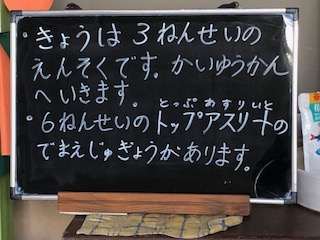 ・きょうは3ねんせいの
えんそくです。かいゆうかん
へいきます。
とっぷあすりいと
・6ねんせいのトップアスリートの
でまえじゅぎょうがあります。